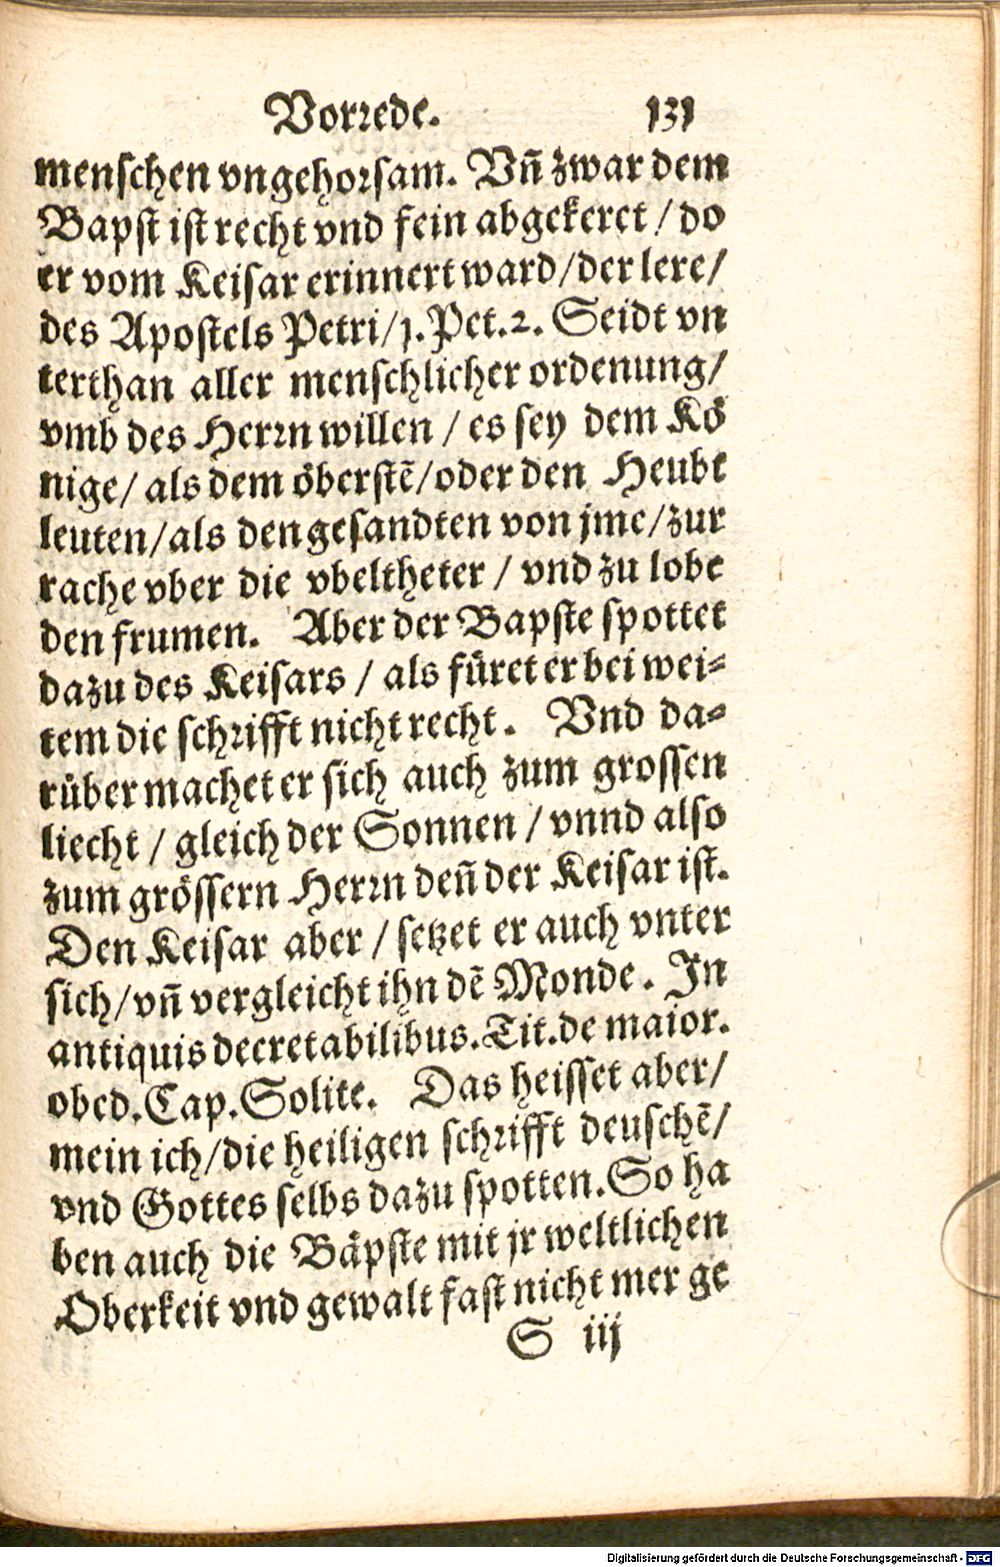 Vorꝛede. 131
menſchen vngehoꝛſam. Vn̄ zwar dem
Bapſt iſt recht vnd fein abgekeret / do
er vom Keiſar erinnert ward/der lere/
des Apoſtels Petri/1. Pet.2. Seidt vn
terthan aller menſchlicher ordenung/
vmb des Herꝛn willen / es ſey dem Kö
nige/ als dem öberſtē/oder den Heubt
leuten/als den geſandten von jme/zur
rache vber die vbeltheter / vnd zu lobe
den frumen. Aber der Bapſte ſpottet
dazu des Keiſars / als füret er bei wei⸗
tem die ſchꝛifft nicht recht. Vnd da⸗
rüber machet er ſich auch zum groſſen
liecht / gleich der Sonnen / vnnd alſo
zum gröſſern Herꝛn den̄ der Keiſar iſt.
Den Keiſar aber / ſetzet er auch vnter
ſich/vn̄ vergleicht ihn dē Monde. In
antiquis decretabilibus.Tit.de maior.
obed.Cap.Solite. Das heiſſet aber/
mein ich/die heiligen ſchꝛifft deuſchē/
vnd Gottes ſelbs dazu ſpotten.So ha
ben auch die Bäpſte mit jr weltlichen
Oberkeit vnd gewalt faſt nicht mer ge
S iij
Digitalisierung gefördert durch die Deutsche Forschungsgemeinschaft - DFG